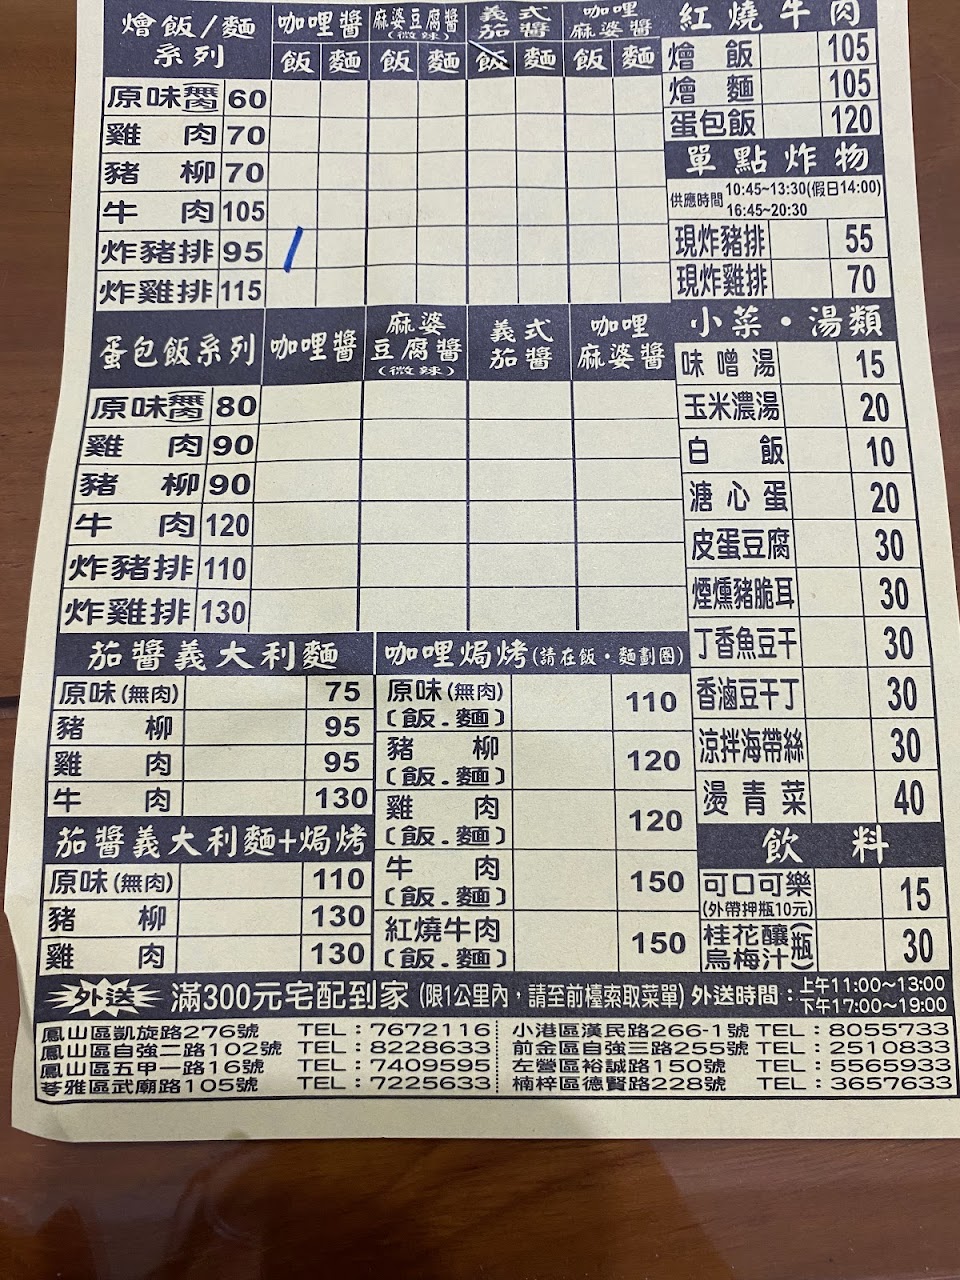 燴飯/麵系列 咖哩醬 麻婆豆腐醬(微辣) 義式茄醬 咖哩麻婆醬
飯 麵 飯 麵 飯 麵 飯 麵
原味無肉 60
雞肉 70
豬柳 70
牛肉 105
炸豬排 95
炸雞排 115
蛋包飯系列 咖哩醬 麻婆豆腐醬(微辣) 義式茄醬 咖哩麻婆醬
原味無肉 80
雞肉 90
豬柳 90
牛肉 120
炸豬排 110
炸雞排 130
茄醬義大利麵
原味(無肉) 75
豬柳 95
雞肉 95
牛肉 130
茄醬義大利麵+焗烤
原味(無肉) 110
豬柳 130
雞肉 130
咖哩焗烤(請在飯・麵劃圈)
原味(無肉)
(飯.麵) 110
豬柳
(飯.麵) 120
雞肉
(飯.麵) 120
牛肉
(飯.麵) 150
紅燒牛肉
(飯.麵) 150
紅燒牛肉
燴飯 105
燴麵 105
蛋包飯 120
單點炸物
供應時間 10:45~13:30(假日14:00)
16:45~20:30
現炸豬排 55
現炸雞排 70
小菜・湯類
味噌湯 15
玉米濃湯 20
白飯 10
溏心蛋 20
皮蛋豆腐 30
煙燻豬脆耳 30
丁香魚豆干 30
香滷豆干丁 30
涼拌海帶絲 30
燙青菜 40
飲料
可口可樂
(外帶押瓶10元) 15
桂花釀烏梅汁(瓶) 30
外送 滿300元宅配到家(限1公里內,請至前檯索取菜單)外送時間:上午11:00~13:00
下午17:00~19:00
鳳山區凱旋路276號 TEL:7672116
鳳山區自強二路102號 TEL:8228633
鳳山區五甲一路16號 TEL:7409595
苓雅區武廟路105號 TEL:7225633
小港區漢民路266-1號 TEL:8055733
前金區自強三路255號 TEL:2510833
左營區裕誠路150號 TEL:5565933
楠梓區德賢路228號 TEL:3657633